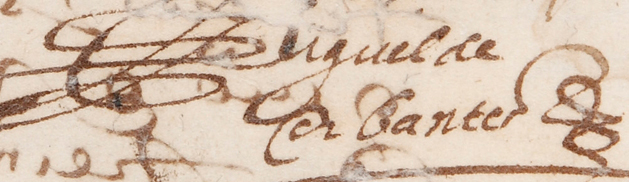 Miguel de
Cerbantes